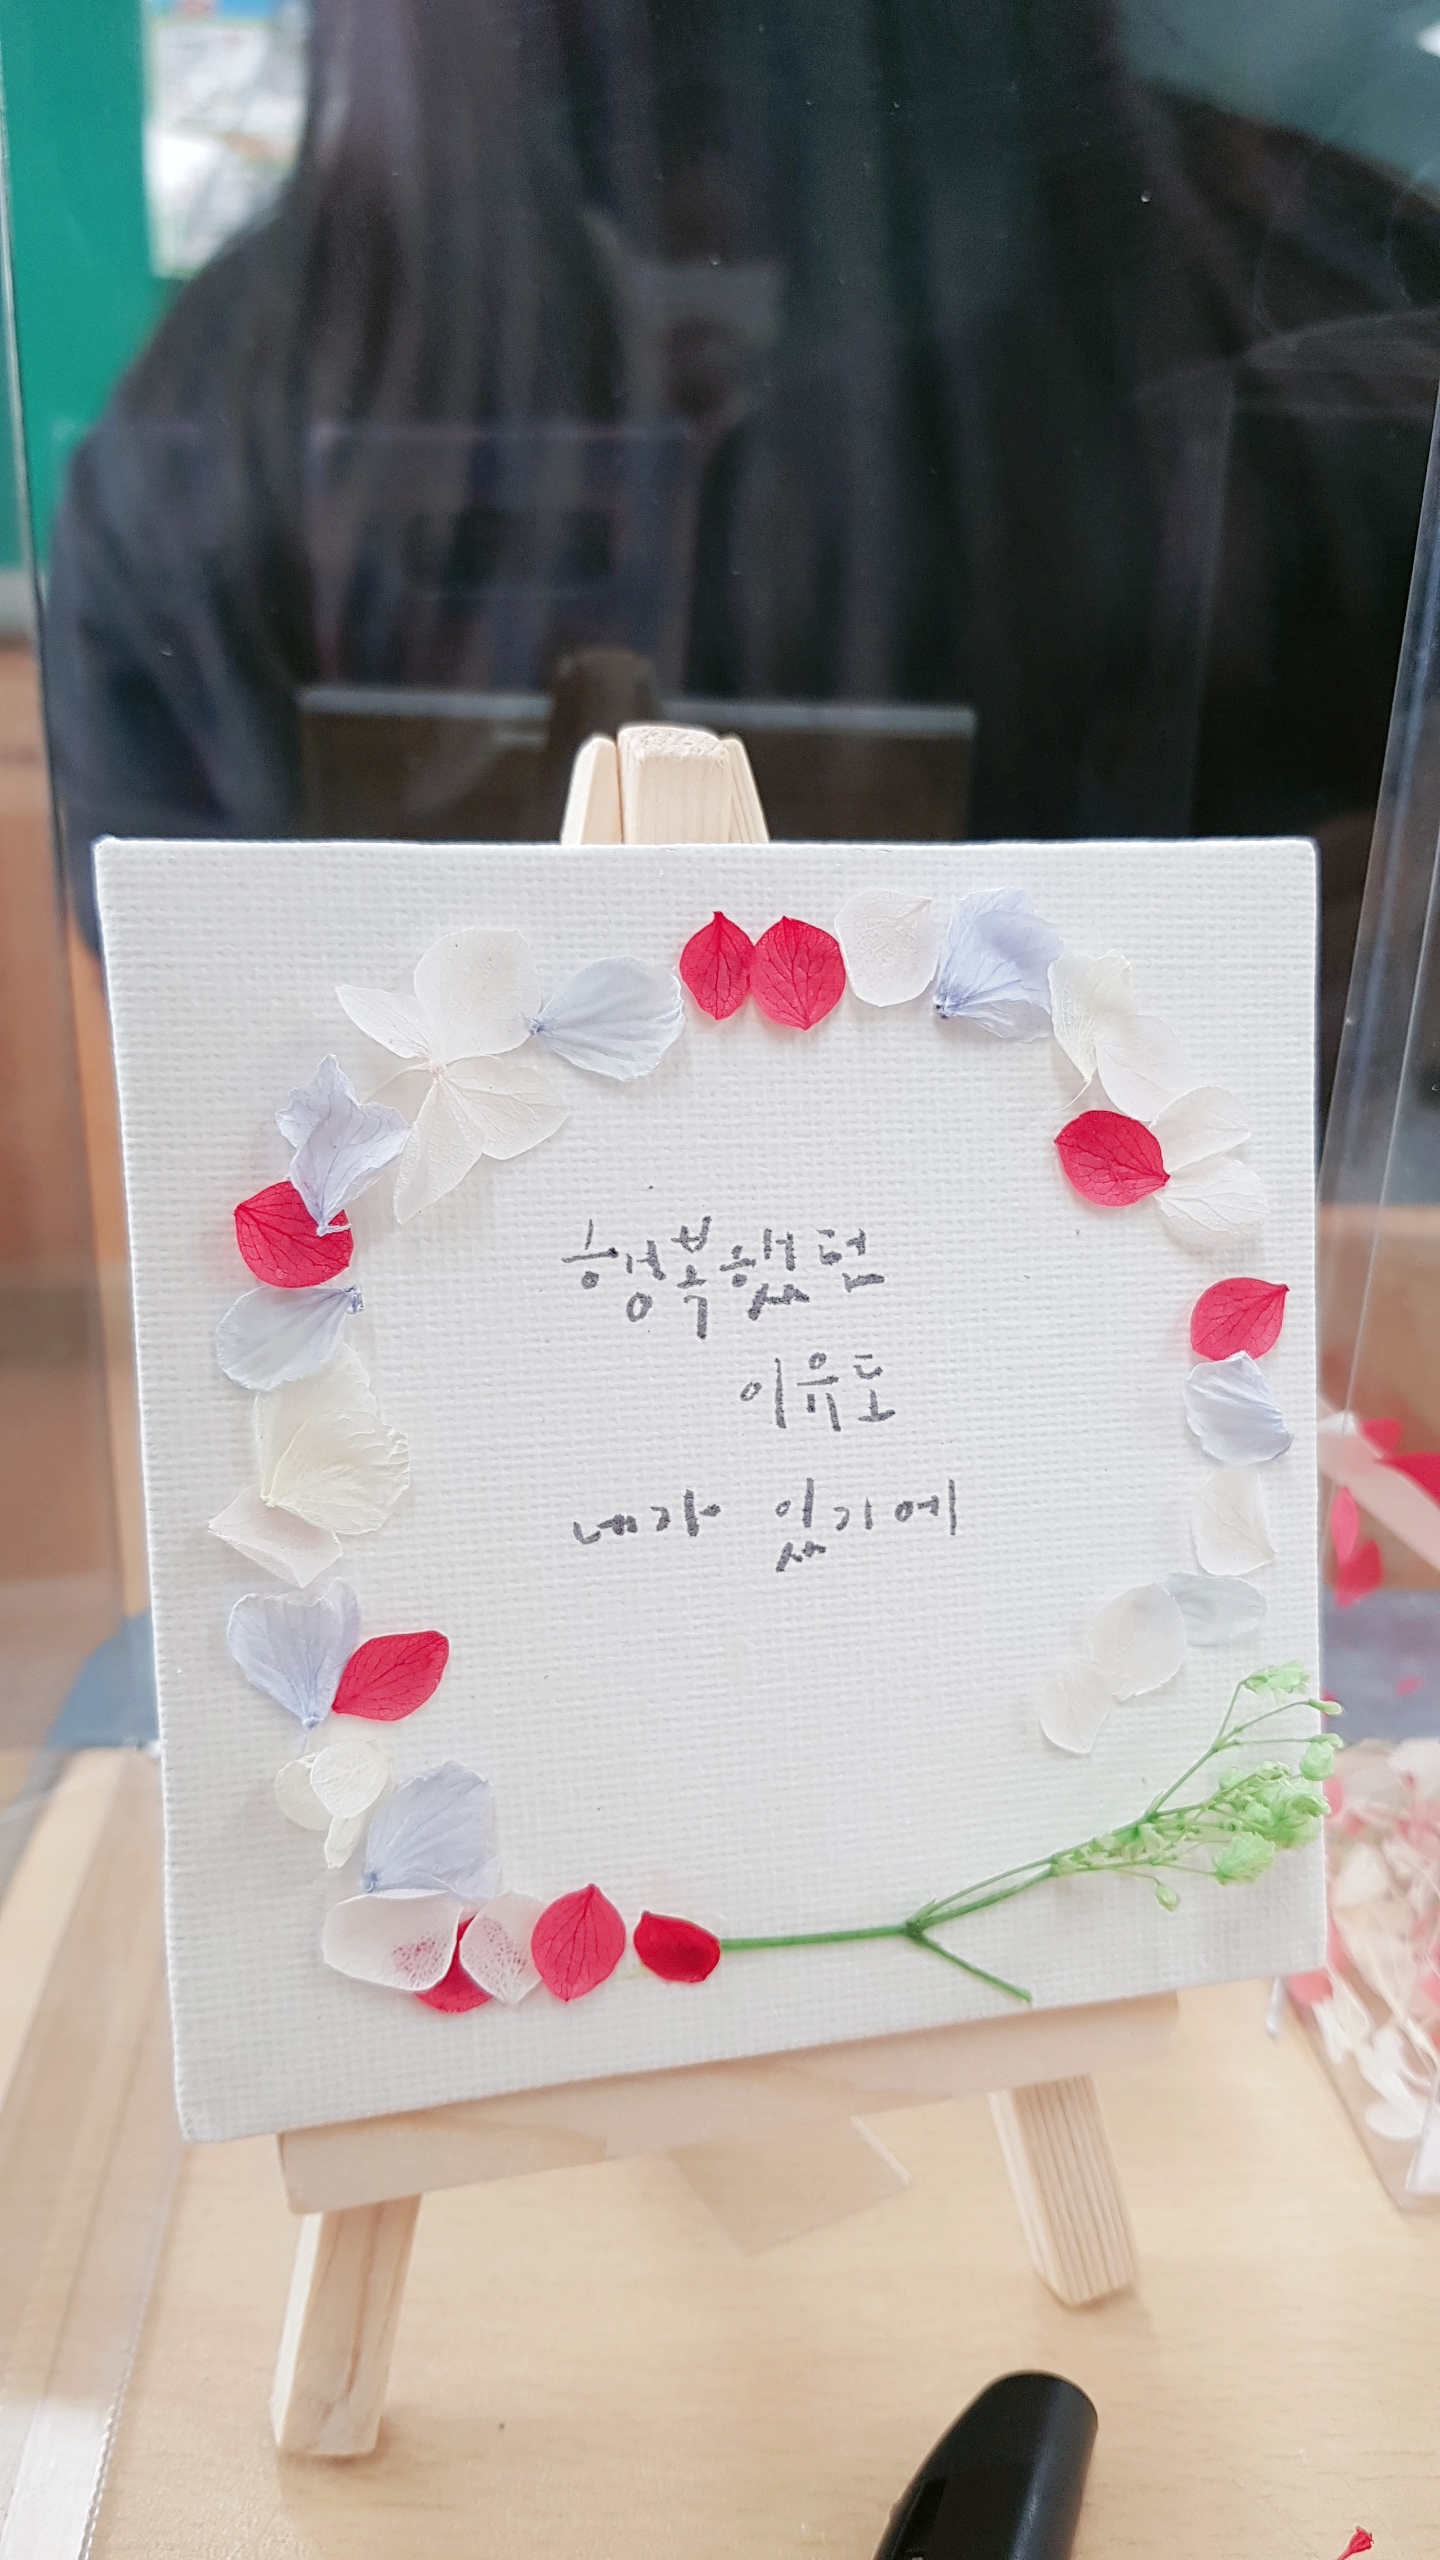 행복했던
이유도
내가 있기에